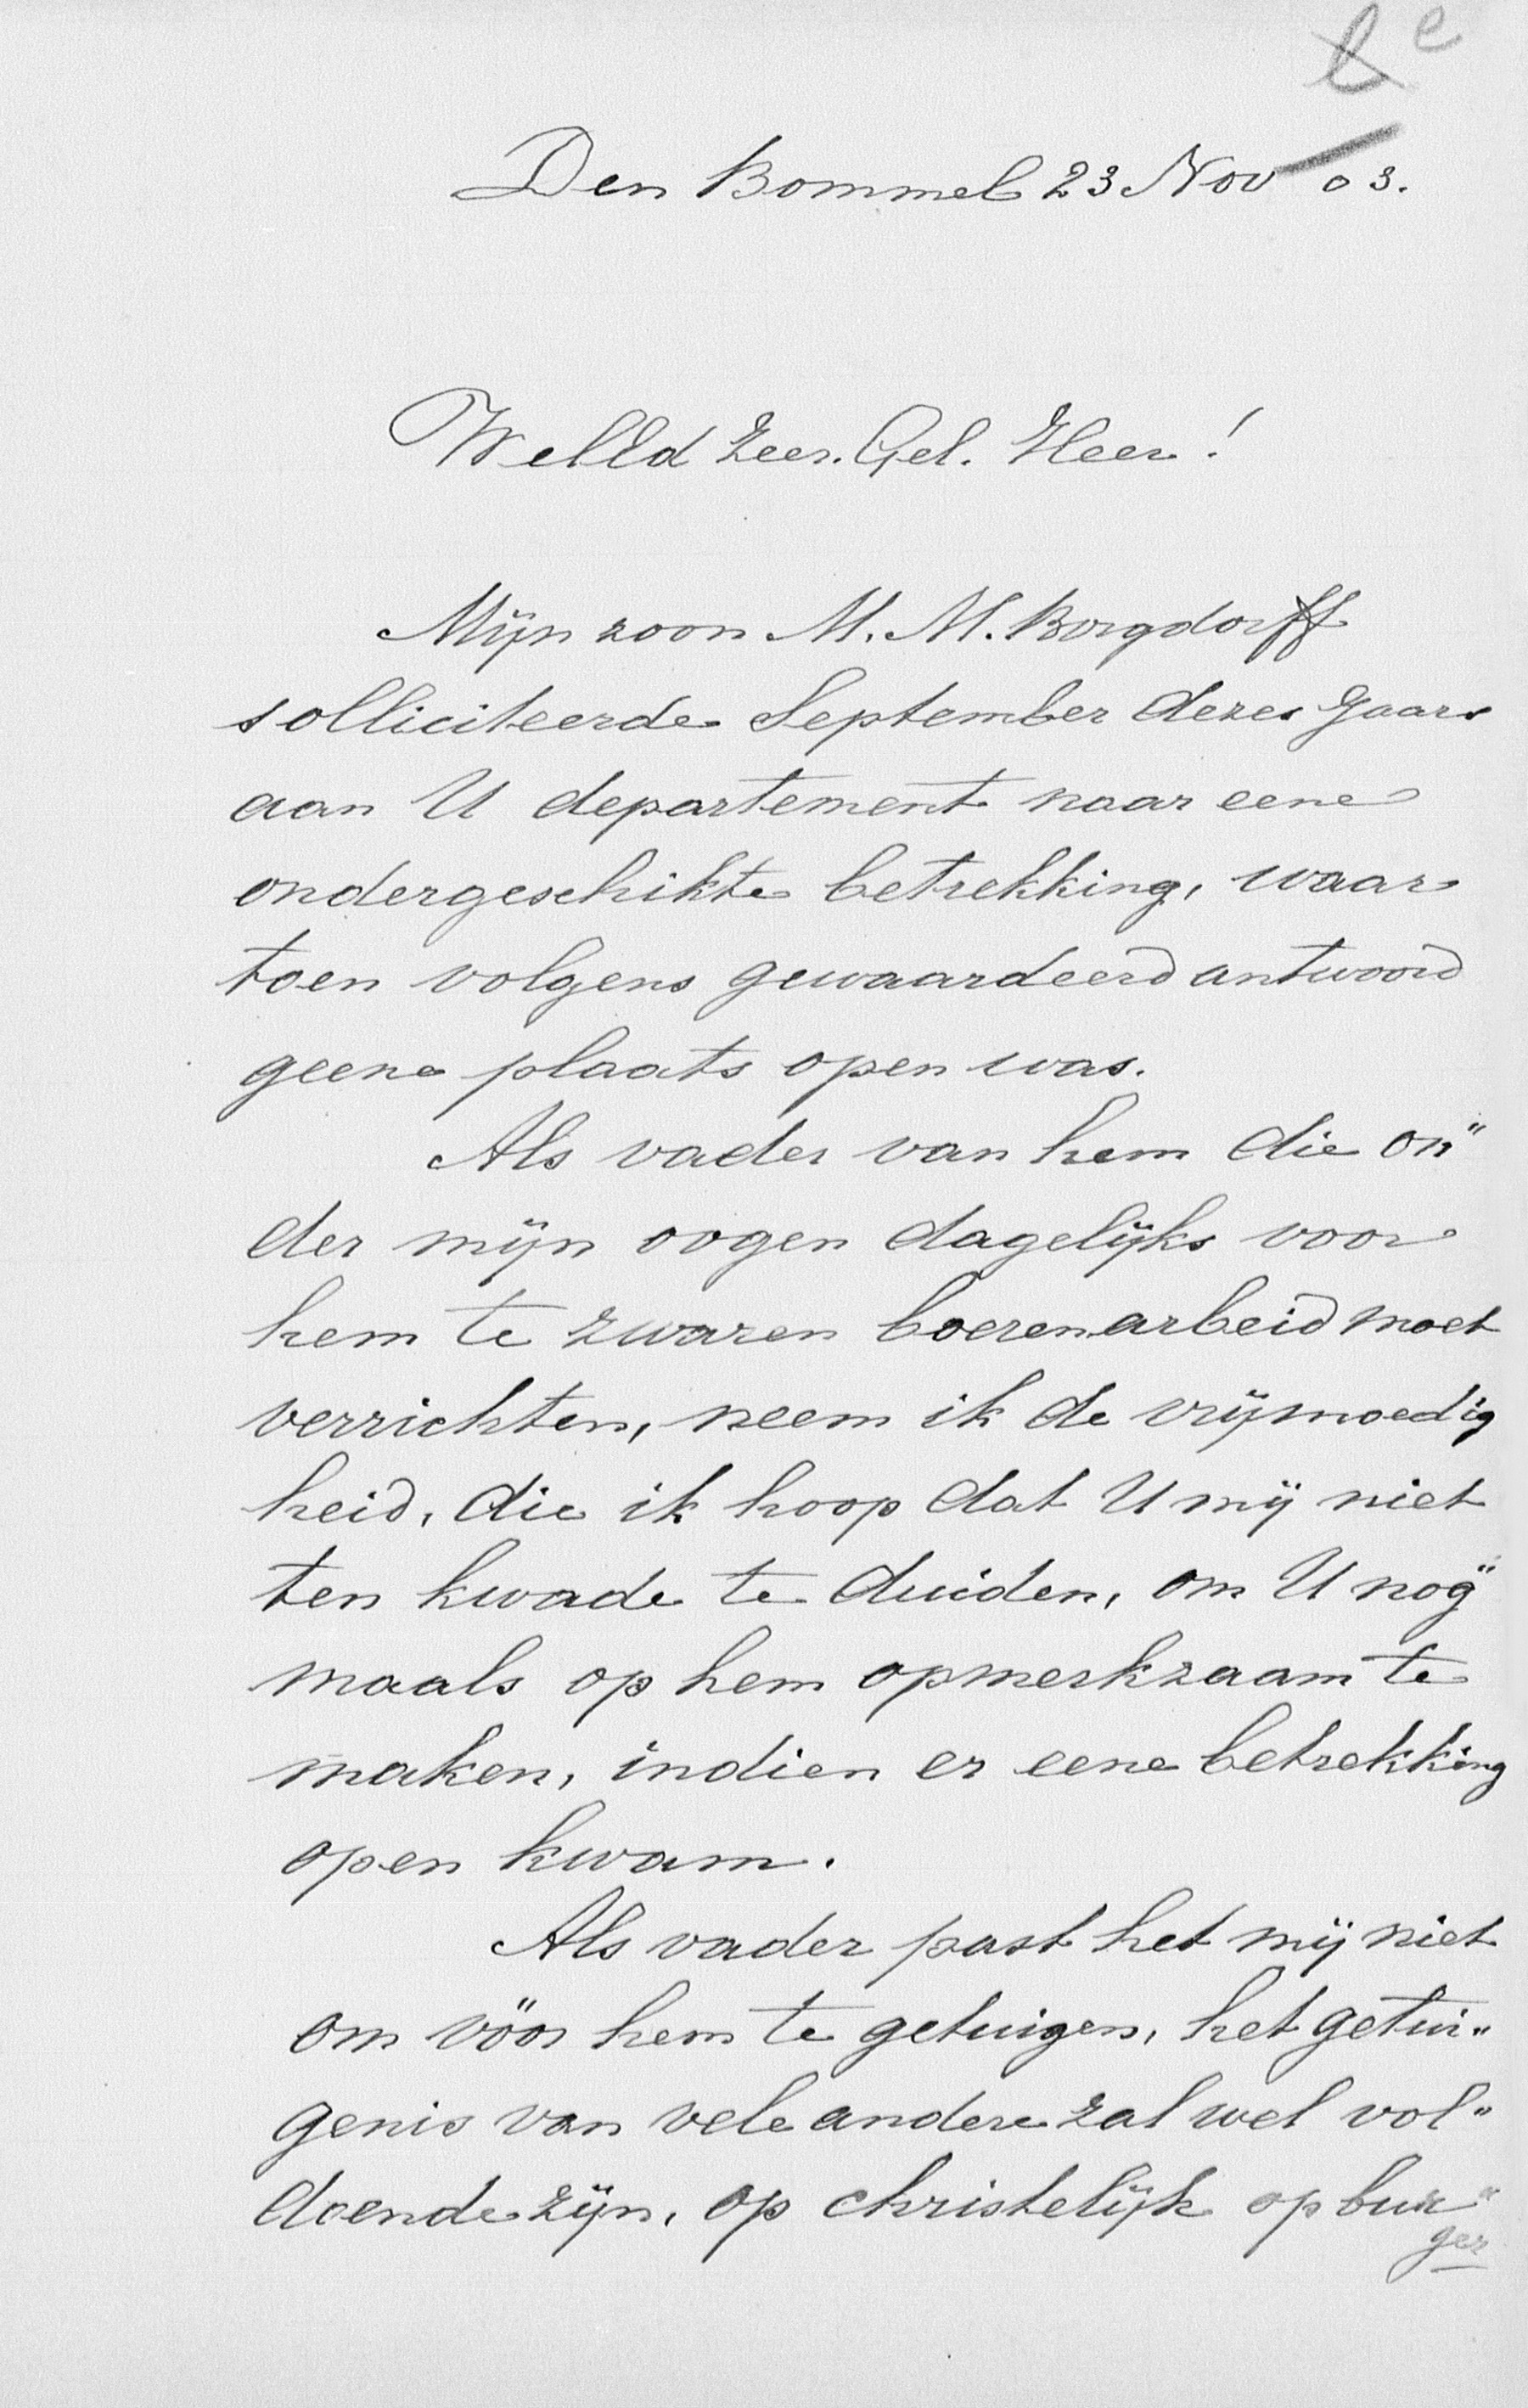 Den Bommel 23 Nov 03.
WelEd Zeer. Gel. Heer!
Mijn zoon M. M. Borgdorff
solliciteerde September dezes Jaars
aan U departement naar eene
ondergeschikte betrekking, waar
toen volgens gewaardeerd antwoord
geene plaats open was.
Als vader van hem die on"
der mijn oogen dagelijks voor
hem te zwaren boerenarbeid moet
verrichten, neem ik de vrijmoedig
heid, die ik hoop dat U mij niet
ten kwade te duiden, om U nog"
maals op hem opmerkzaam te
maken, indien er eene betrekking
open kwam.
Als vader past het mij niet
om vöor hem te getuigen, het getui"
genis van vele andere zal wel vol"
doende zijn, op christelijk op bur"
ger